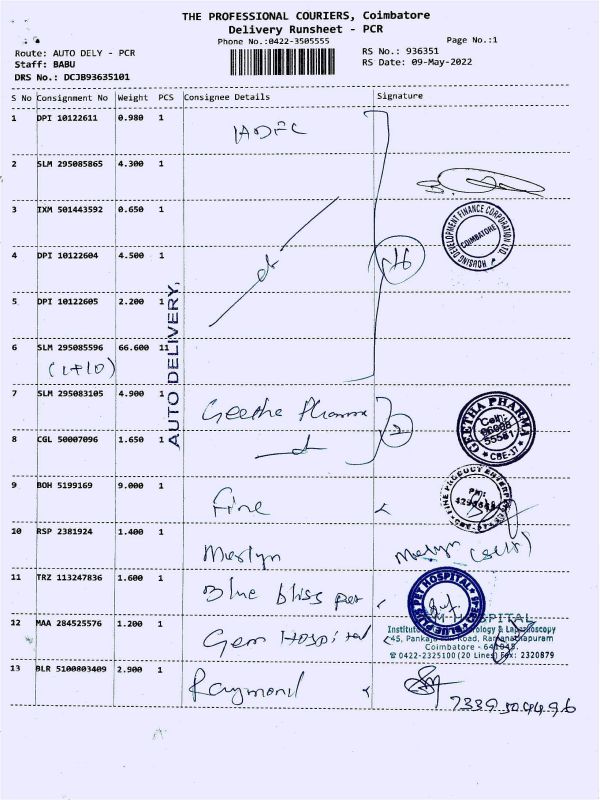 THE PROFESSIONAL COURIERS, Coimbatore
Delivery Runsheet - PCR
Phone No.:0422-3505555
Page No.:1
Route: AUTO DELY - PCR
RS No.: 936351
Staff: BABU
RS Date: 09-May-2022
DRS No.: DCJB93635101
S No Consignment No Weight PCS Consignee Details Signature
1 DPI 10122611 0.980 1 HDFC
2 SLM 295085865 4.300 1
3 IXM 501443592 0.650 1
HOUSING DEVELOPMENT FINANCE CORPORATION LTD.
COIMBATORE
4 DPI 10122604 4.500 1
5 DPI 10122605 2.200 1
AUTO DELIVERY,
6 SLM 295085596 66.600 11
(1+10)
7 SLM 295083105 4.900 1 Geetha Pharma
GEETHA PHARMA
Cell:
CBE-37
8 CGL 50007096 1.650 1
2
9 BOH 5199169 9.000 1 Fine
FINE PRODUCT ENTERPRISES
PH:
10 RSP 2381924 1.400 1 Merlyn Merlyn (Self)
11 TRZ 113247836 1.600 1 Blue bliss pet
BLUE BLISS PET HOSPITAL
12 MAA 284525576 1.200 1 Gem Hospital
HOSPITAL
45, Pankaja Road, Ramanathapuram
Coimbatore - 641045.
0422-2325100 (20 Lines) Fax: 2320879
13 BLR 5100803409 2.900 1 Raymond